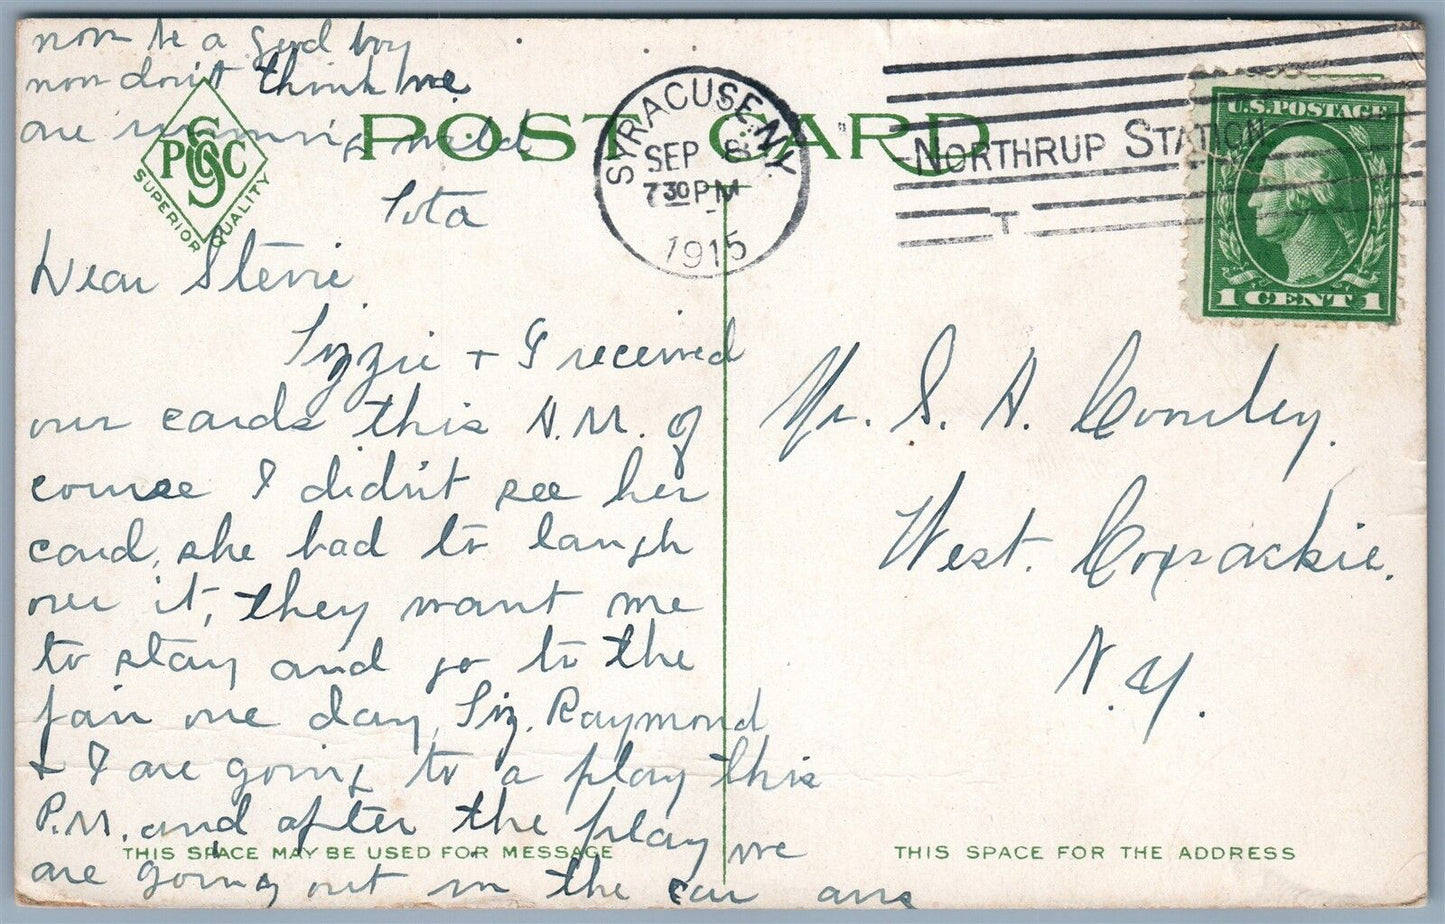 now be a good boy
now don't think we
are running wild
Lota
POST CARD
P S C
SUPERIOR QUALITY
SYRACUSE, N.Y.
SEP 8
7 30 PM
1915
NORTHRUP STATION
T
U.S. POSTAGE
1 CENT 1
Dear Stevie
Lizzie + I received
our cards this A.M. of
course I didn't see her
card, she had to laugh
over it, they want me
to stay and go to the
fair one day, Liz, Raymond
+ I are going to a play this
P.M. and after the play we
are going out in the car
THIS SPACE MAY BE USED FOR MESSAGE
Mr. S. A. Comley.
West. Coxsackie.
N.Y.
THIS SPACE FOR THE ADDRESS